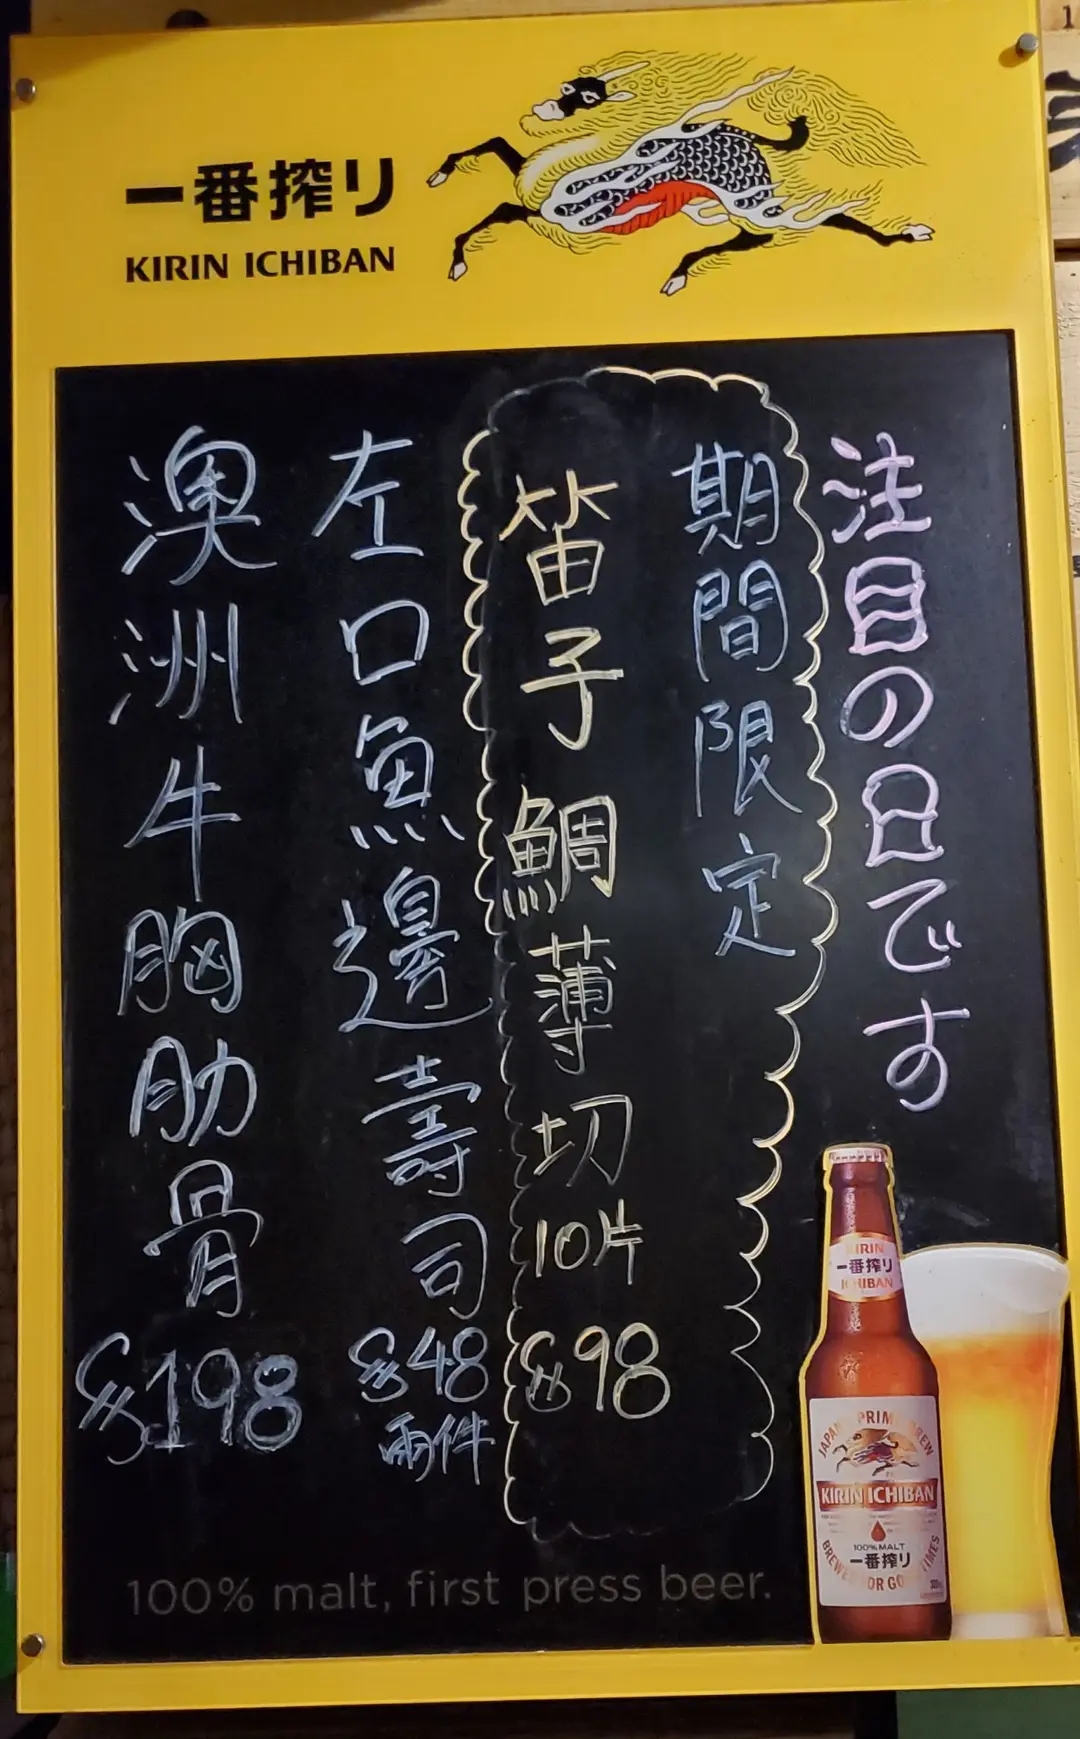 一番搾り
KIRIN ICHIBAN
注目の日です
期間限定
笛子鯛薄切10片
$98
左口魚邊壽司
$48
兩件
澳洲牛胸肋骨
$198
KIRIN
一番搾り
ICHIBAN
JAPAN'S PRIME BREW
KIRIN ICHIBAN
100% MALT
一番搾り
BREWED FOR GOOD TIMES
100% malt, first press beer.